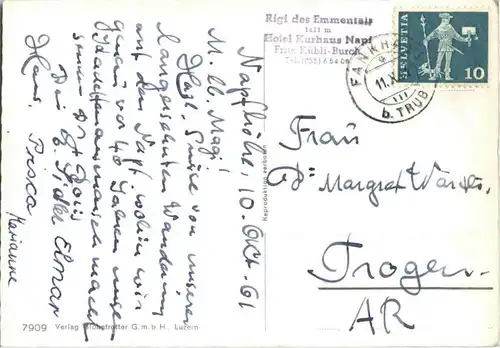 Rigi des Emmentals
Hotel Kurhaus Napf
Fritz Kübli-Burch
HELVETIA
10
FANKHAUS
11.X
b. TRUB
Napfhöhe, 10. Okt. 61
M. lb. Magi!
Herzl. Grüsse von unserer
langersehnten Wanderung
auf den Napf, wohin wir
genau vor 40 Jahren unse
machten
Dein
Elmar
Hans, Prisca
Marianne
Reproduktion verboten
Frau
Margret
Trogen
AR
7909 Verlag Globetrotter G.m.b.H., Luzern